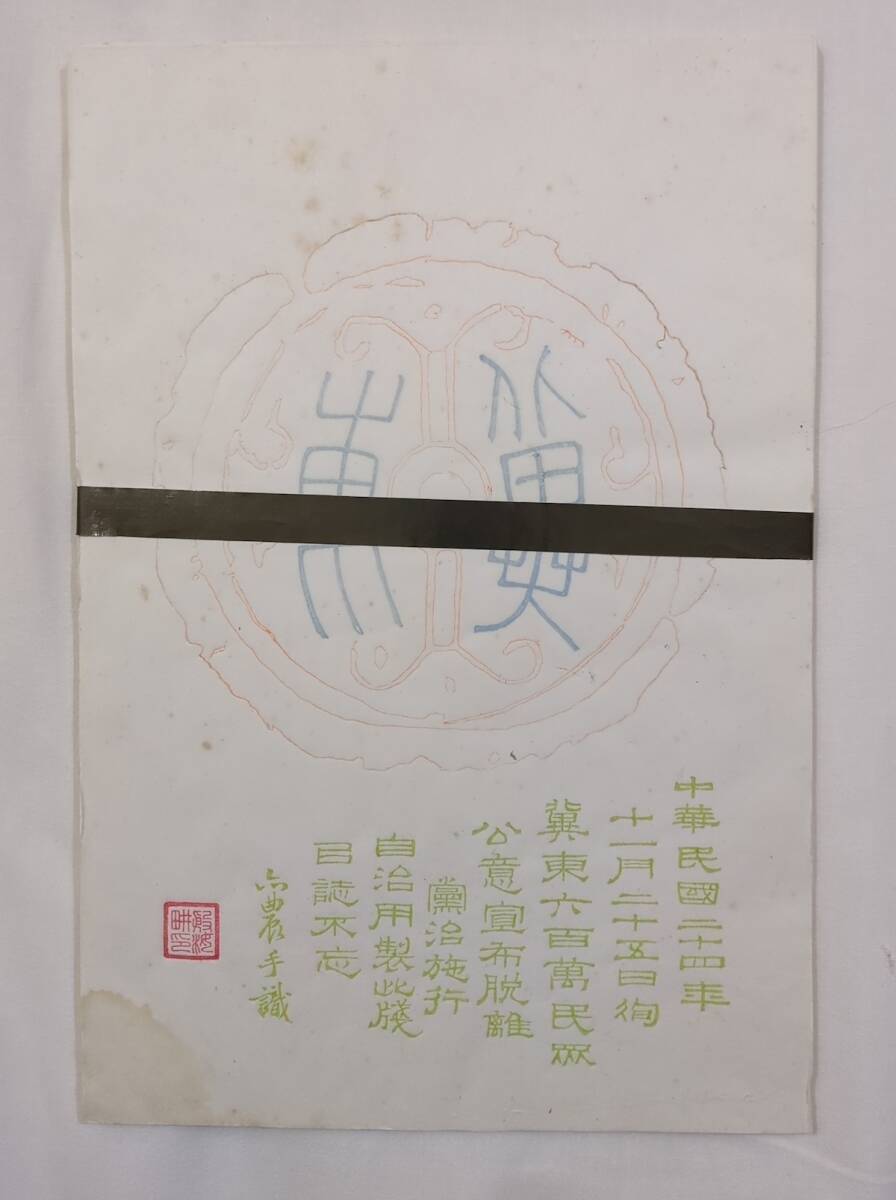 冀東
中華民國二十四年
十一月二十五日徇
冀東六百萬民眾
公意宣布脫離
黨治施行
自治用製此牋
㠯誌不忘
亦農手識
殷汝耕印